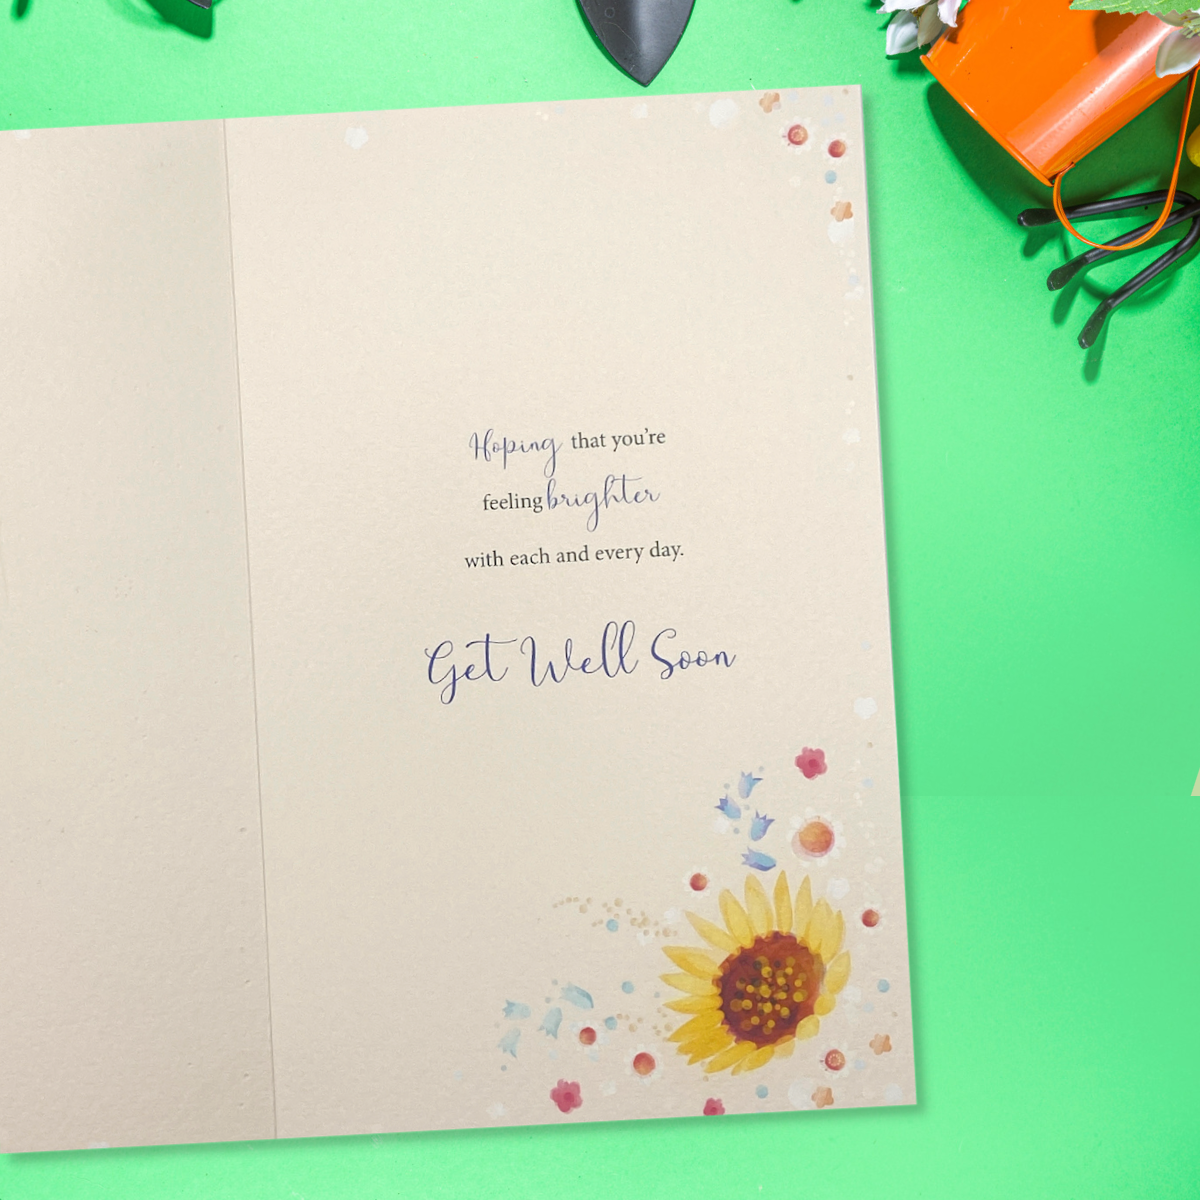 Hoping that you're
feeling brighter
with each and every day.
Get Well Soon